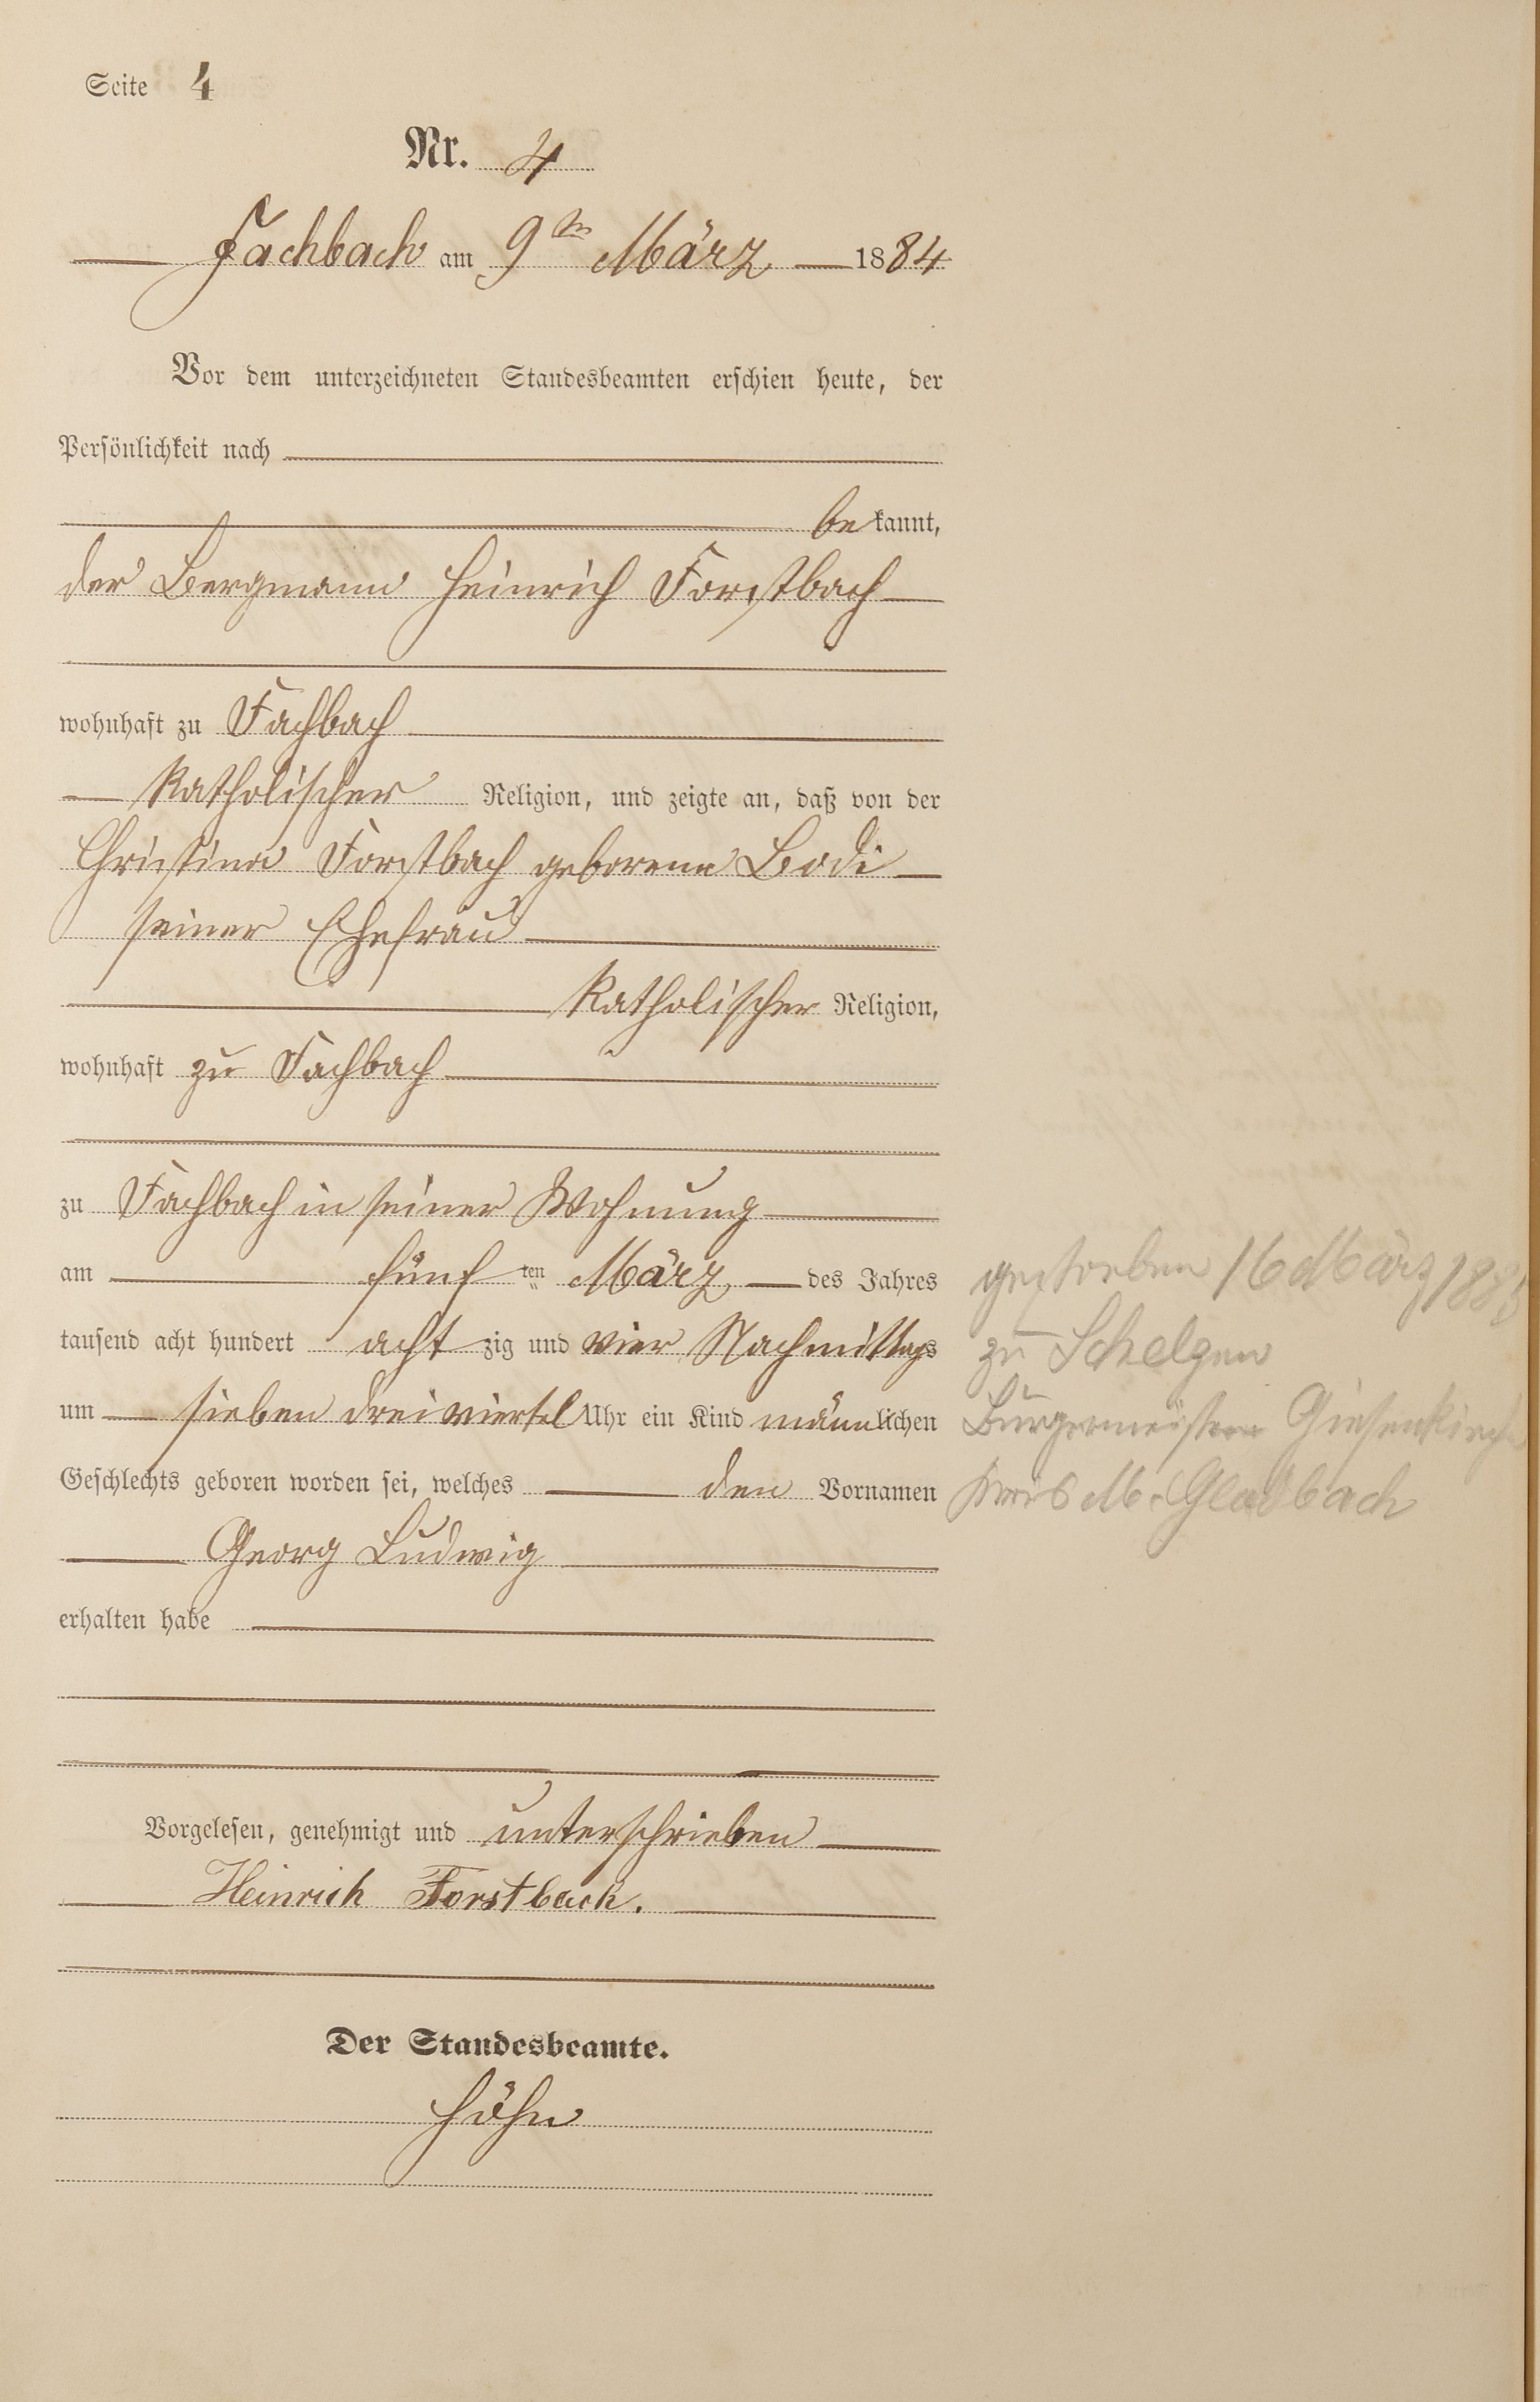 Seite 4
Nr. 4
Fachbach am 9ten März 1884
Vor dem unterzeichneten Standesbeamten erschien heute, der
Persönlichkeit nach
be kannt,
der Bergmann Heinrich Forstbach
wohnhaft zu Fachbach
Katholischer Religion, und zeigte an, daß von der
Christina Forstbach geborene Bodi
seiner Ehefrau
Katholischer Religion,
wohnhaft zu Fachbach
zu Fachbach in seiner Wohnung
am fünf ten März des Jahres
tausend acht hundert acht zig und vier Nachmittags
um sieben dreiviertel Uhr ein Kind männlichen
Geschlechts geboren worden sei, welches den Vornamen
Georg Ludwig
erhalten habe
Vorgelesen, genehmigt und unterschrieben
Heinrich Forstbach.
Der Standesbeamte.
Höhn
gestorben 16 März 1885
zu Schelsen
Bürgermeisterei
Kreis M. Gladbach